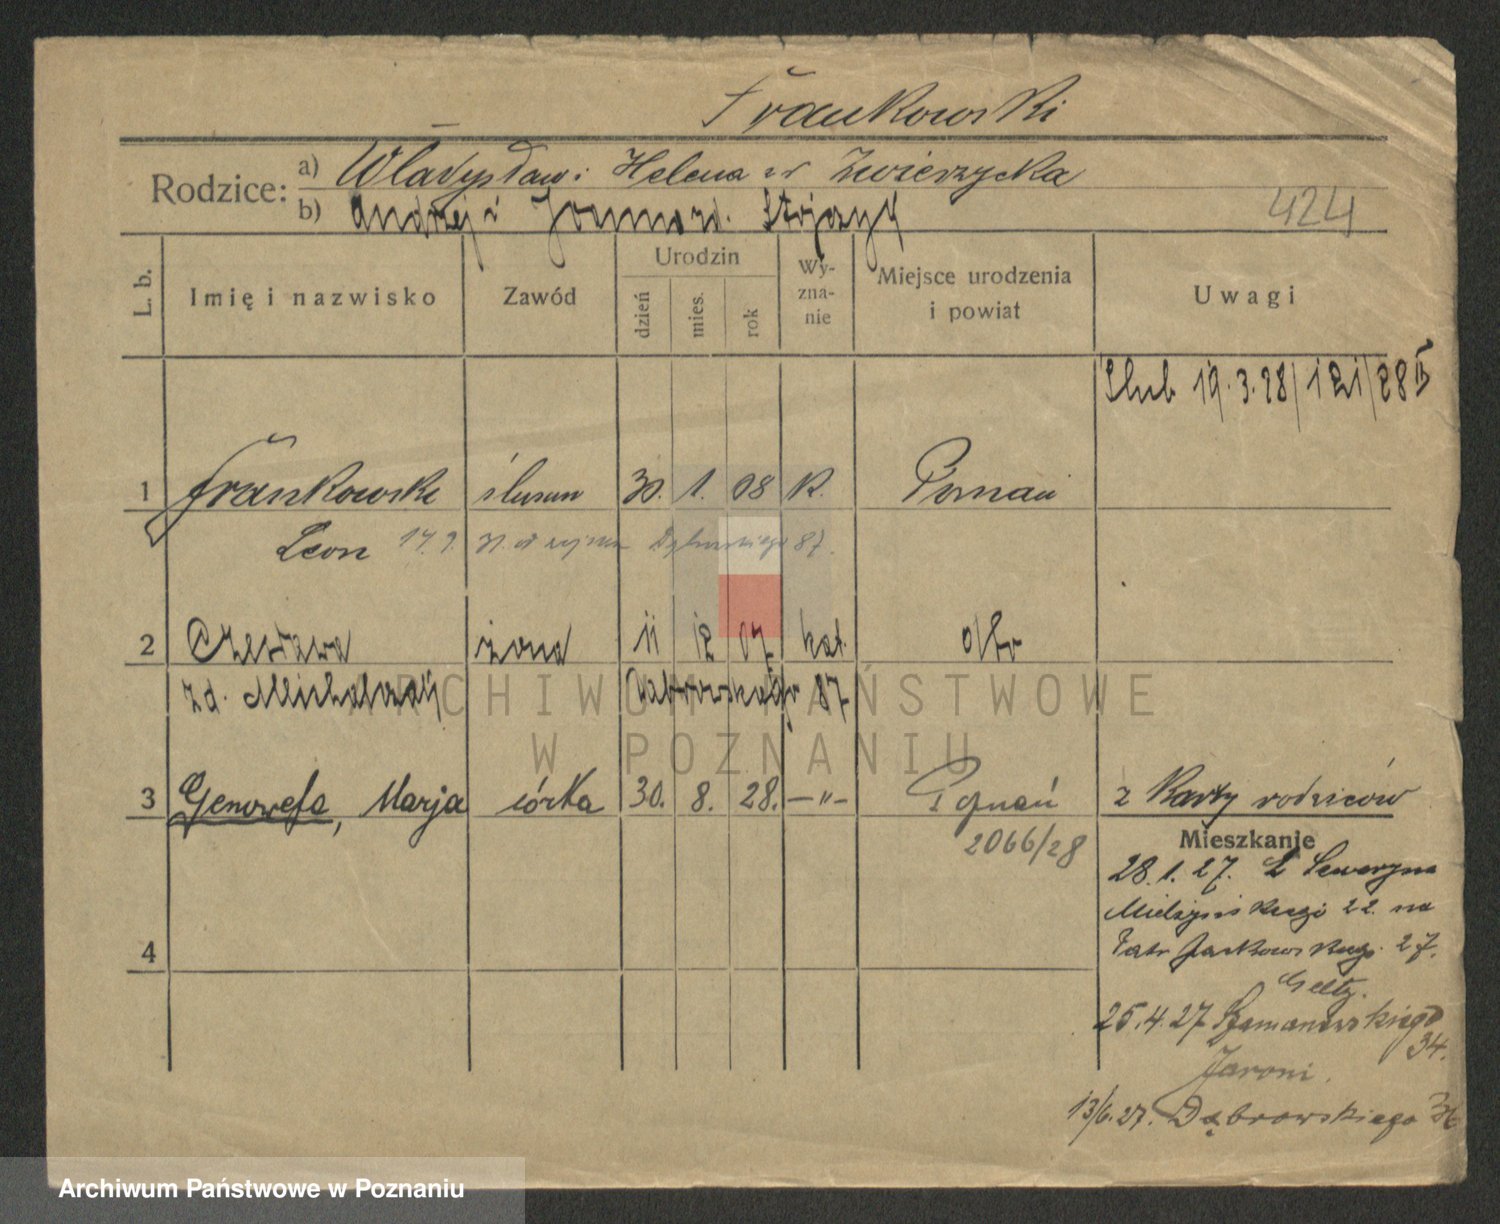 Frankowski
Rodzice: a) Władysław i Helena zd Zwierzycka
b) Andrzej i Joanna zd. Stójczyk
424
L. b. Imię i nazwisko Zawód Urodzin dzień mies. rok Wy-zna-nie Miejsce urodzenia i powiat Uwagi
Ślub 19.3.28/121/28 III
1 Frankowski ślusarz 30. 1. 08 k. Poznań
Leon 17.9. 31. od Dąbrowskiego 87.
2 Czesława żona 11 12 07 kat.
zd. Michalczak Dąbrowskiego 87
3 Genowefa, Marja córka 30. 8. 28. —"— Poznań z Karty rodziców
2066/28
Mieszkanie
28.1.27. Z Seweryna
Mielżyńskiego 22. na
Jackowskiego 27.
4
25.4.27 Szamarzewskiego
34.
Jaroni.
13/6.27. Dąbrowskiego
ARCHIWUM PAŃSTWOWE
W POZNANIU
Archiwum Państwowe w Poznaniu